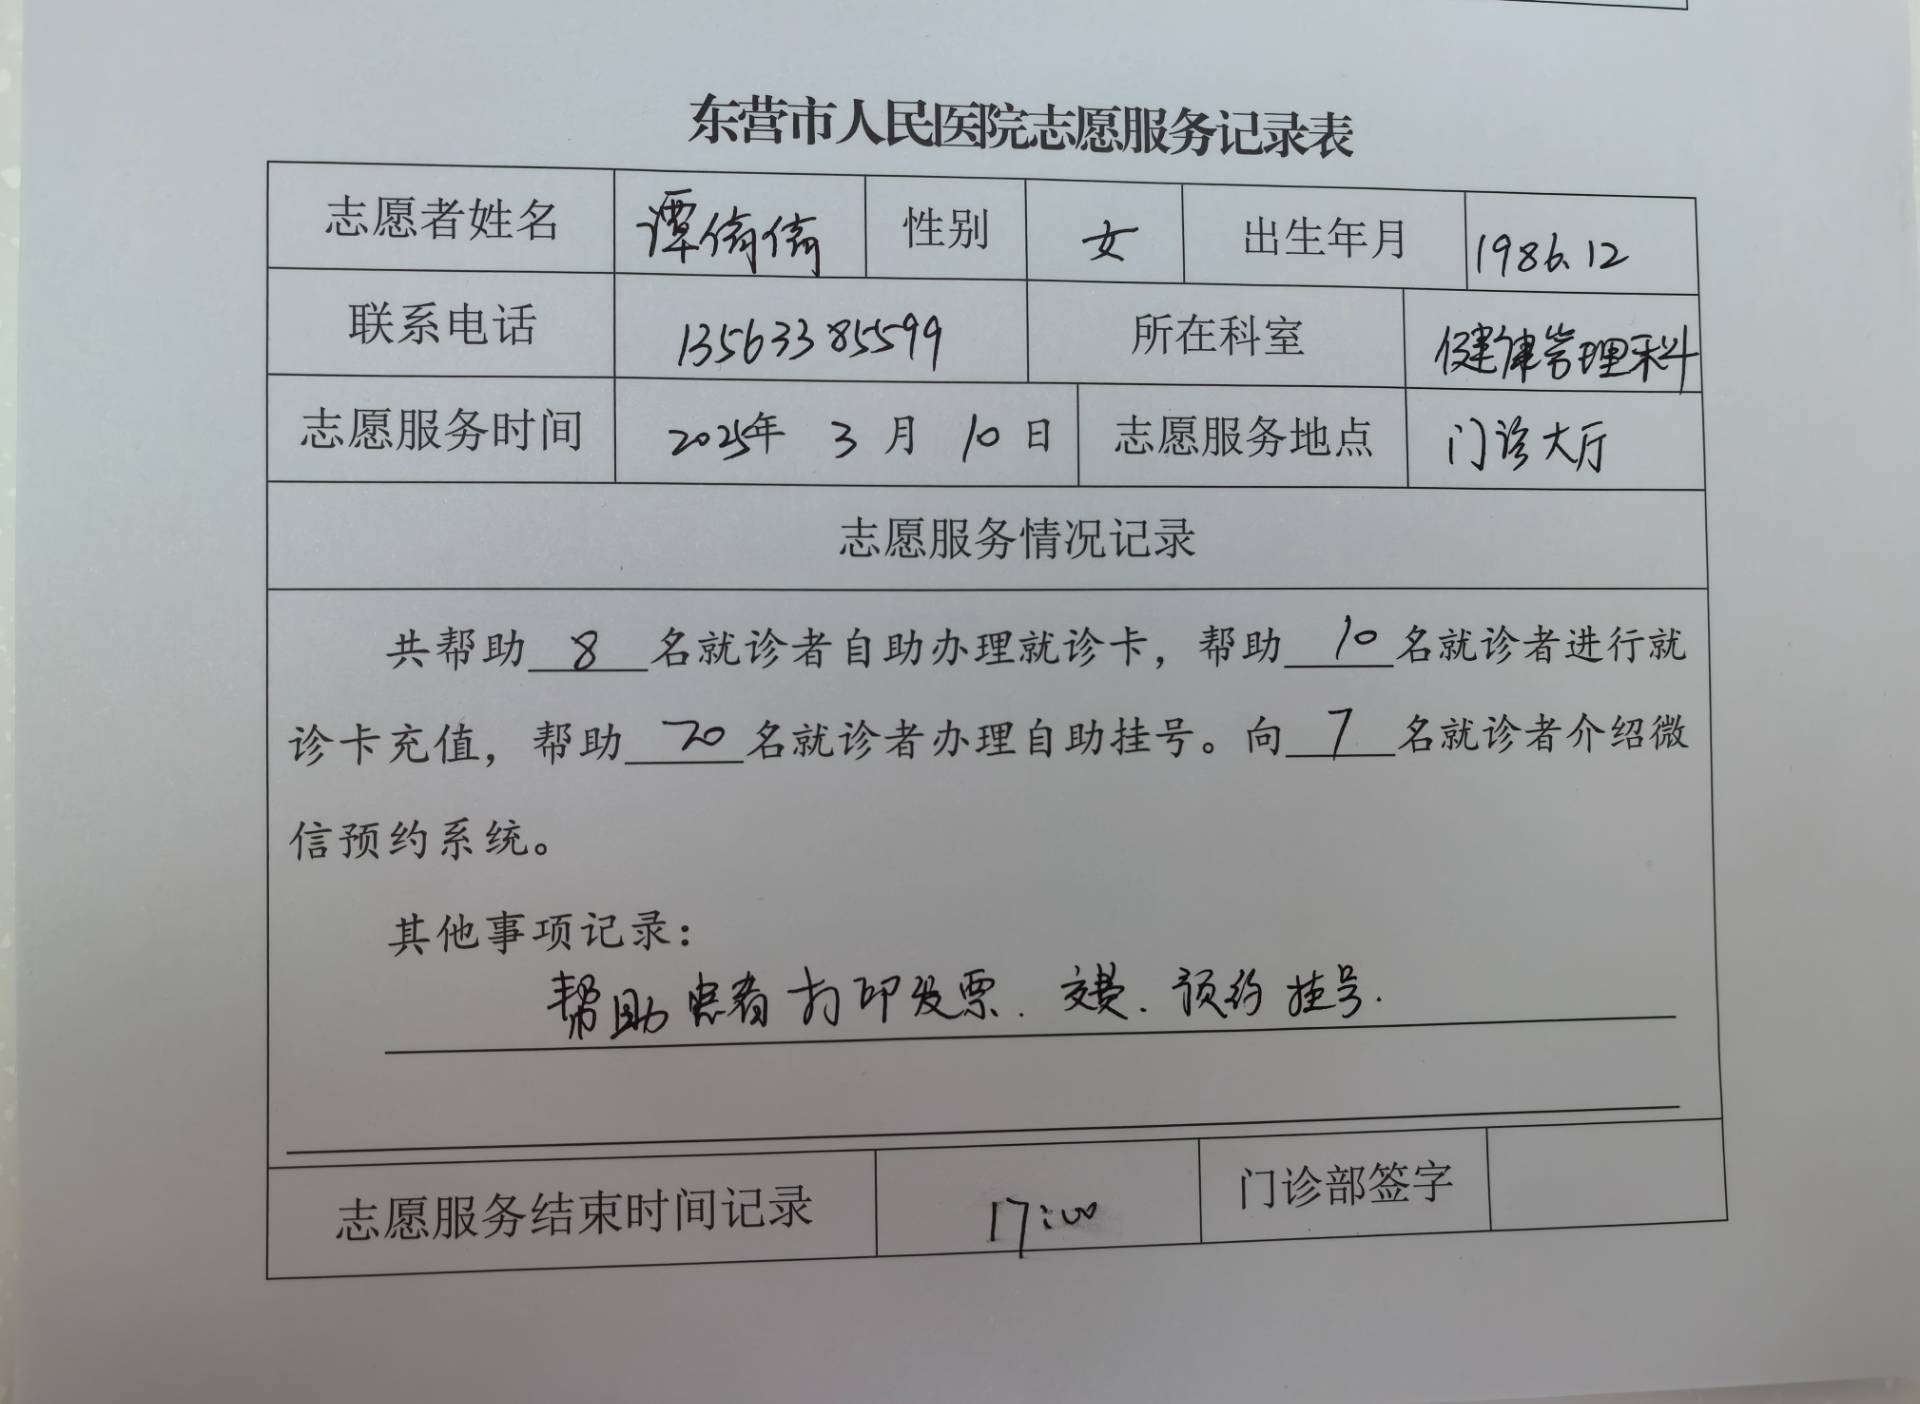 东营市人民医院志愿服务记录表
志愿者姓名 谭倩倩 性别 女 出生年月 1986.12
联系电话 13563385599 所在科室 健康管理科
志愿服务时间 2025年 3 月 10 日 志愿服务地点 门诊大厅
志愿服务情况记录
共帮助 8 名就诊者自助办理就诊卡，帮助 10 名就诊者进行就
诊卡充值，帮助 20 名就诊者办理自助挂号。向 7 名就诊者介绍微
信预约系统。
其他事项记录：
帮助患者打印发票.交费.预约挂号.
志愿服务结束时间记录 17:00 门诊部签字